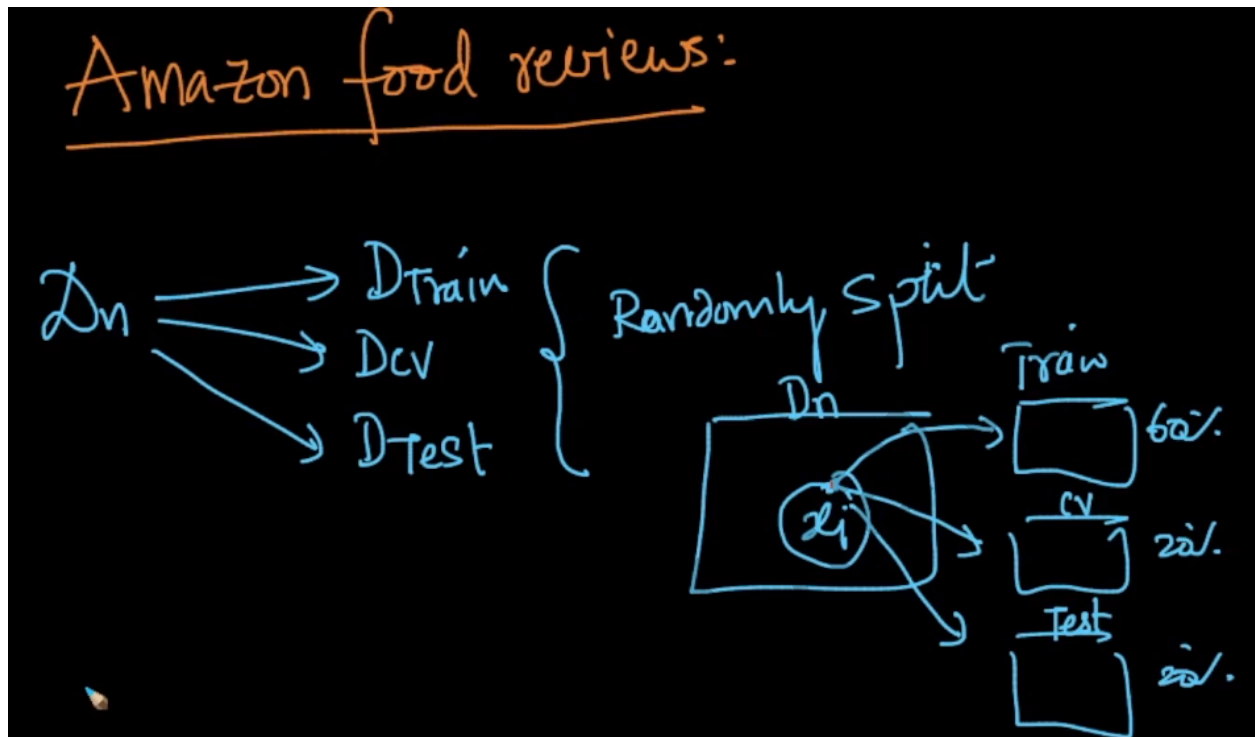 Amazon food reviews:
Dn
DTrain
DCV
DTest
Randomly Split
Dn
xi
Train
60%
CV
20%
Test
20%